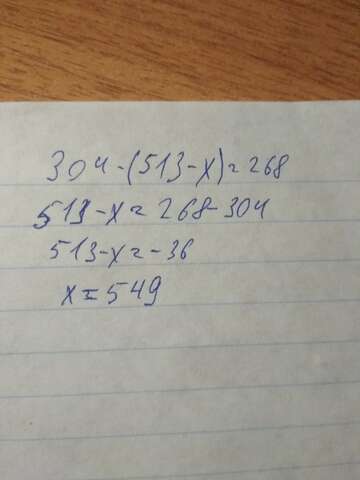 304-(513-x)=268
513-x=268-304
513-x=-36
x=549